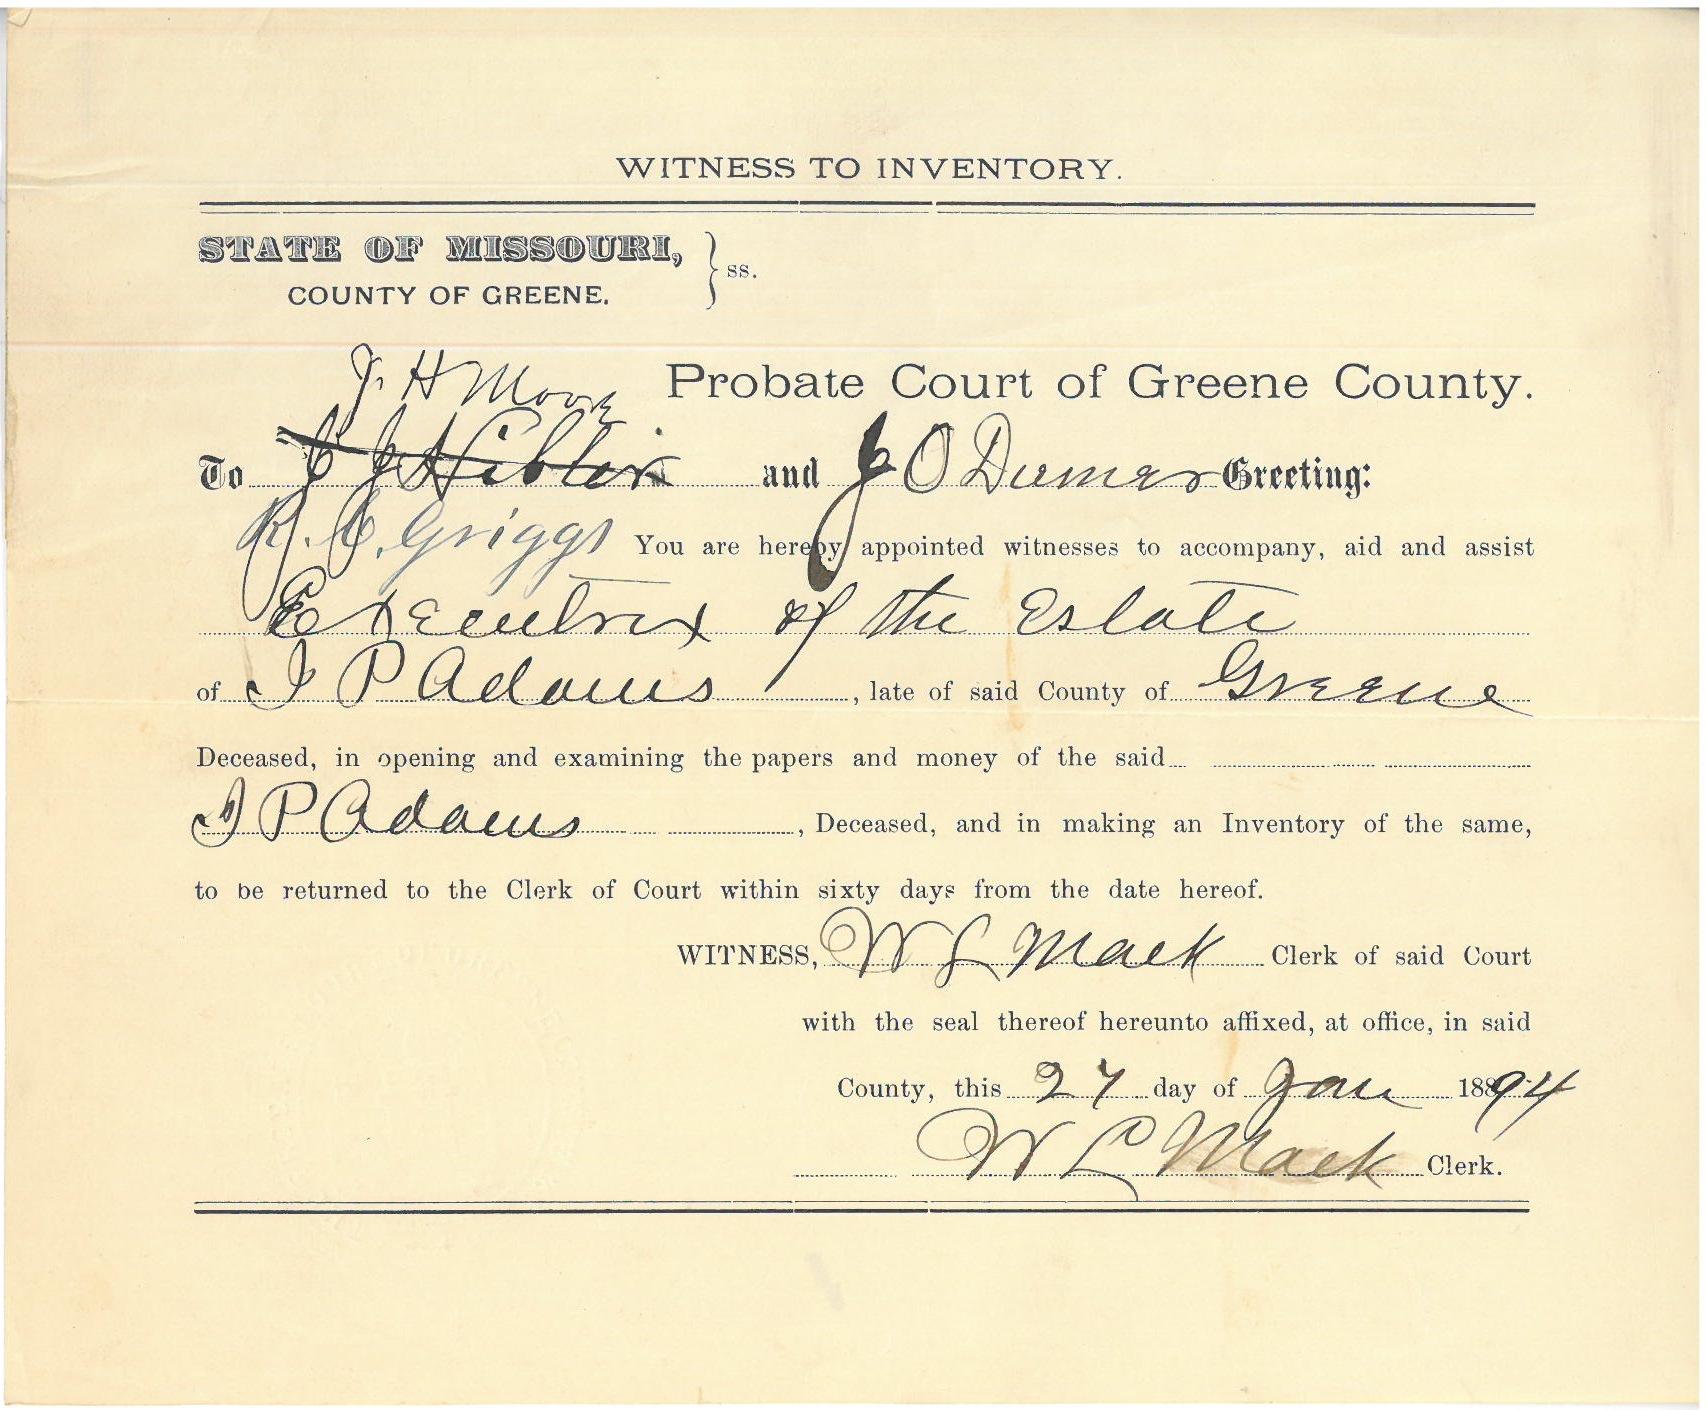 WITNESS TO INVENTORY.
STATE OF MISSOURI,
COUNTY OF GREENE. } ss.
J. H Moore Probate Court of Greene County.
To and J O Greeting:
R. C. Griggs You are hereby appointed witnesses to accompany, aid and assist
Executrix of the Estate
of I P Adams, late of said County of Greene
Deceased, in opening and examining the papers and money of the said
I P Adams, Deceased, and in making an Inventory of the same,
to be returned to the Clerk of Court within sixty days from the date hereof.
WITNESS, W L Mack Clerk of said Court
with the seal thereof hereunto affixed, at office, in said
County, this 27 day of Jan 1894
W L Mack Clerk.